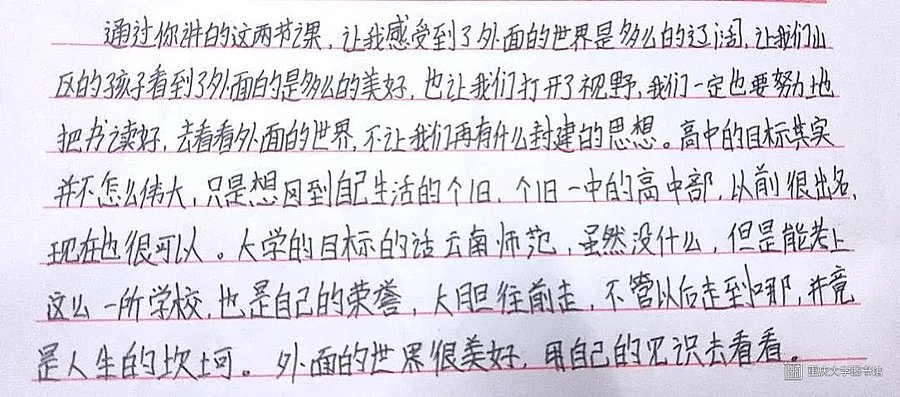 通过你讲的这两节课，让我感受到了外面的世界是多么的辽阔，让我们山
区的孩子看到了外面的是多么的美好，也让我们打开了视野，我们一定也要努力地
把书读好，去看看外面的世界，不让我们再有什么封建的思想。高中的目标其实
并不怎么伟大，只是想回到自己生活的个旧，个旧一中的高中部，以前很出名，
现在也很可以。大学的目标的话云南师范，虽然没什么，但是能考上
这么一所学校，也是自己的荣誉，大胆往前走，不管以后走到哪，并竟
是人生的坎坷。外面的世界很美好，用自己的见识去看看。
重庆大学图书馆